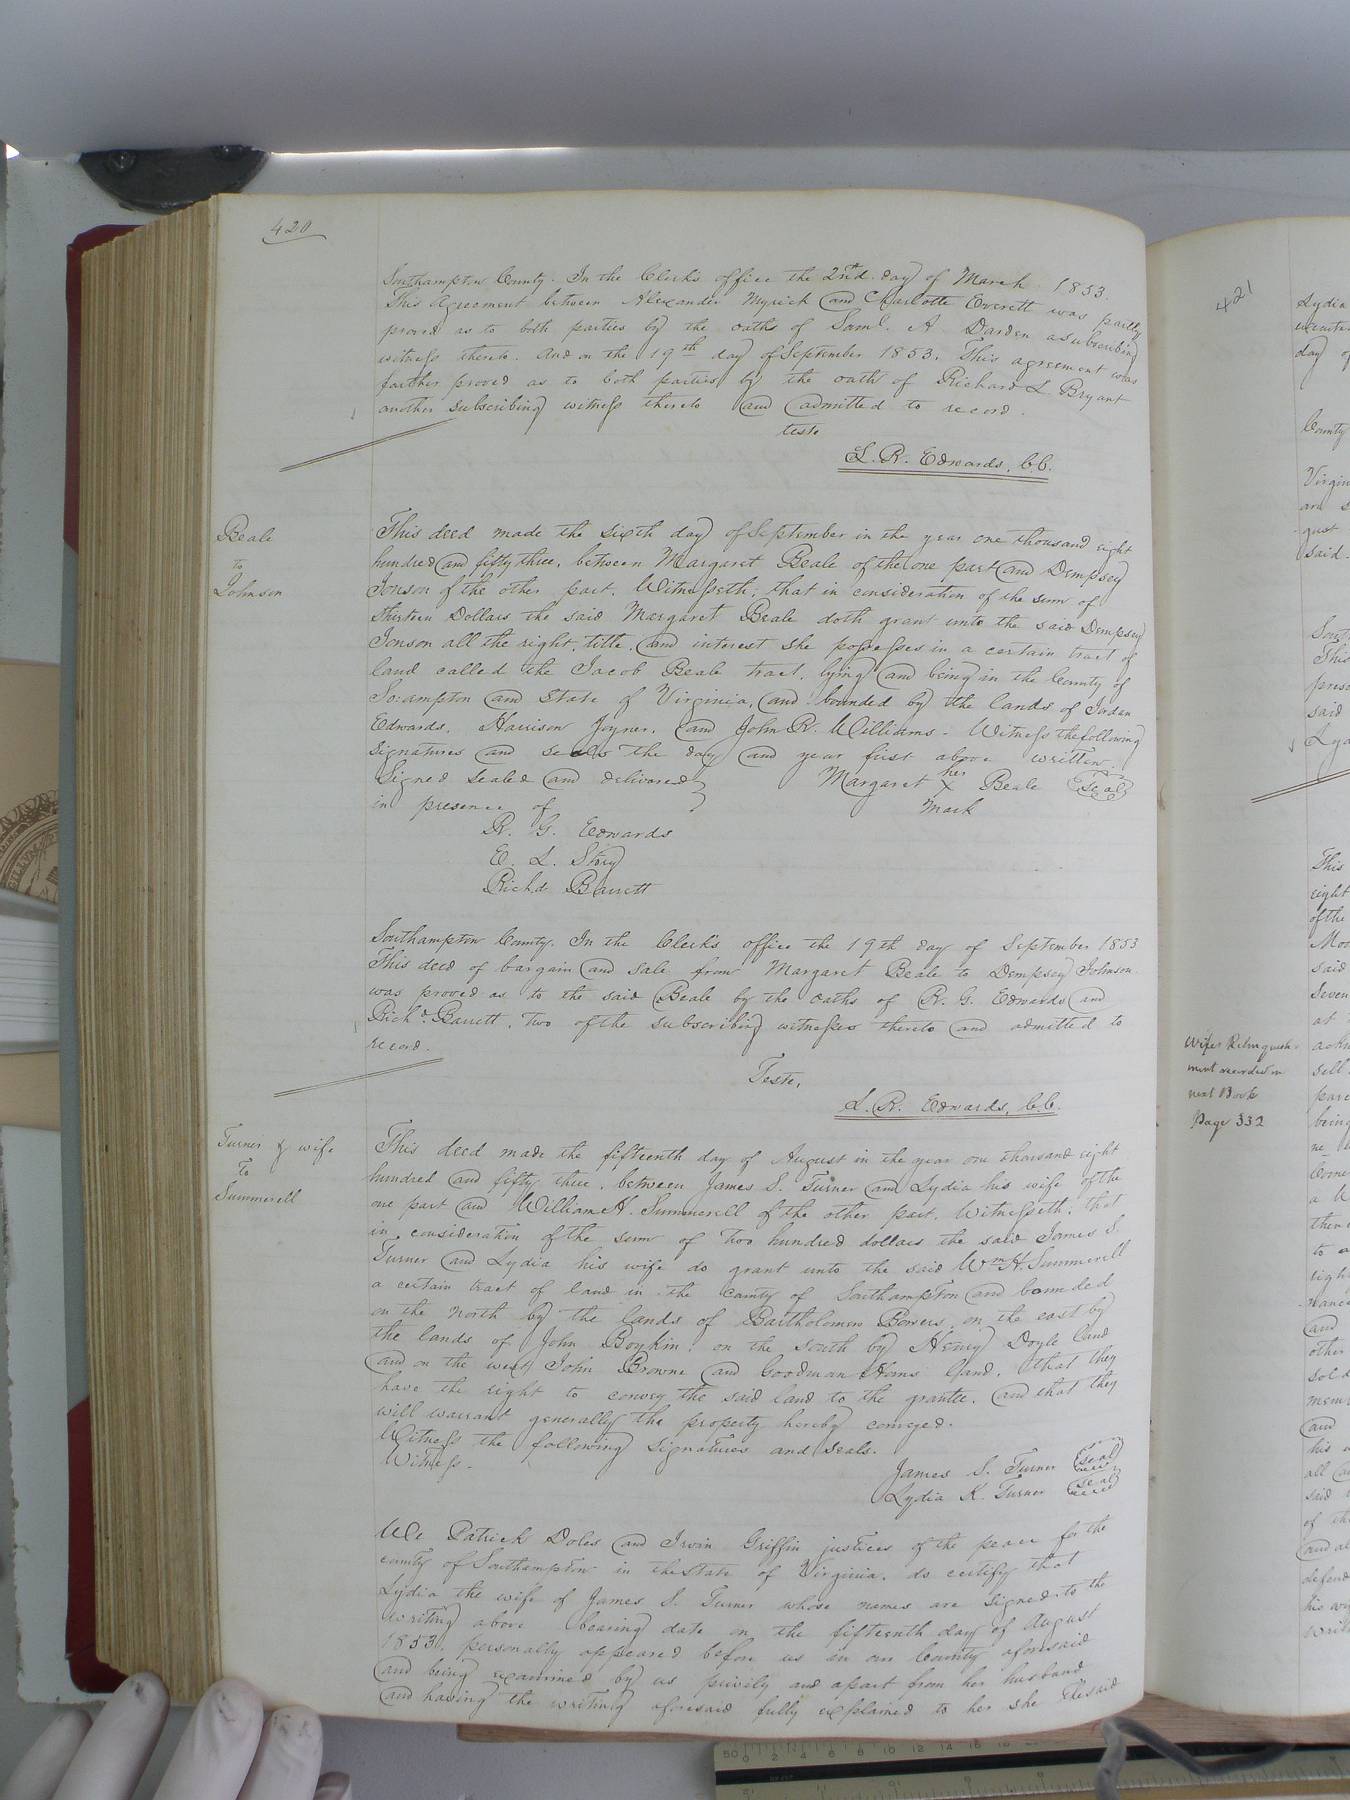 420
Southampton County. In the Clerk's office the 2nd day of March 1853.
This Agreement between Alexander Myrick and Charlotte Everett was partly
proved as to both parties by the oaths of Saml. A Darden a subscribing
witness thereto. And on the 19th day of September 1853. This agreement was
farther proved as to both parties by the oath of Richard L Bryant
another subscribing witness thereto and admitted to record.
teste
L. R. Edwards, C.C.
Beale
to
Johnson
This deed made the sixth day of September in the year one thousand eight
hundred and fifty three, between Margaret Beale of the one part and Dempsey
Jonson of the other part. Witnesseth, that in consideration of the sum of
thirteen Dollars the said Margaret Beale doth grant unto the said Dempsey
Jonson all the right, title, and interest she possesses in a certain tract of
land called the Jacob Beale tract, lying and being in the County of
So:ampton and State of Virginia, and bounded by the lands of Jordan
Edwards, Harrison Joyner, and John R. Williams. Witness the following
signatures and seals the day and year first above written.
Signed sealed and delivered
in presence of
her
Margaret X Beale Seal
Mark
R. G. Edwards
E. L. Story
Richd Barrett
Southampton County. In the Clerk's office the 19th day of September 1853
This deed of bargain and sale from Margaret Beale to Dempsey Johnson
was proved as to the said Beale by the oaths of R. G. Edwards and
Richd. Barrett, two of the subscribing witnesses thereto and admitted to
record.
Teste,
L. R. Edwards, C.C.
Turner & wife
To
Summerell
This deed made the fifteenth day of August in the year one thousand eight
hundred and fifty three, between James S. Turner and Lydia his wife of the
one part and William H. Summerell of the other part. Witnesseth; that
in consideration of the sum of two hundred dollars the said James S.
Turner and Lydia his wife do grant unto the said Wm H. Summerell
a certain tract of land in the county of Southampton and bounded
on the North by the lands of Bartholomew Bowers, on the east by
the lands of John Boykin, on the south by Henry Doyle land
and on the west John Browne and Goodman Hams land, that they
have the right to convey the said land to the grantee, and that they
will warrant generally the property hereby conveyed.
Witness the following signatures and seals.
Witness.
James S. Turner Seal
Lydia K. Turner Seal
We Patrick Doles and Irvin Griffin justices of the peace for the
county of Southampton in the State of Virginia, do certify that
Lydia the wife of James S. Turner whose names are signed to the
writing above bearing date on the fifteenth day of August
1853, personally appeared before us in our County aforesaid
and being examined by us privily and apart from her husband
and having the writing aforesaid fully explained to her she the said
421
Lydia
day of
County
Virgin
said
This
said
This
eight
of the
said
Seven
at
Wifes Relinquish-
ment recorded in
next Book
Page 332
sell
being
a
to a
and
other
sold
and
his
all
said
of th
and al
defend
his